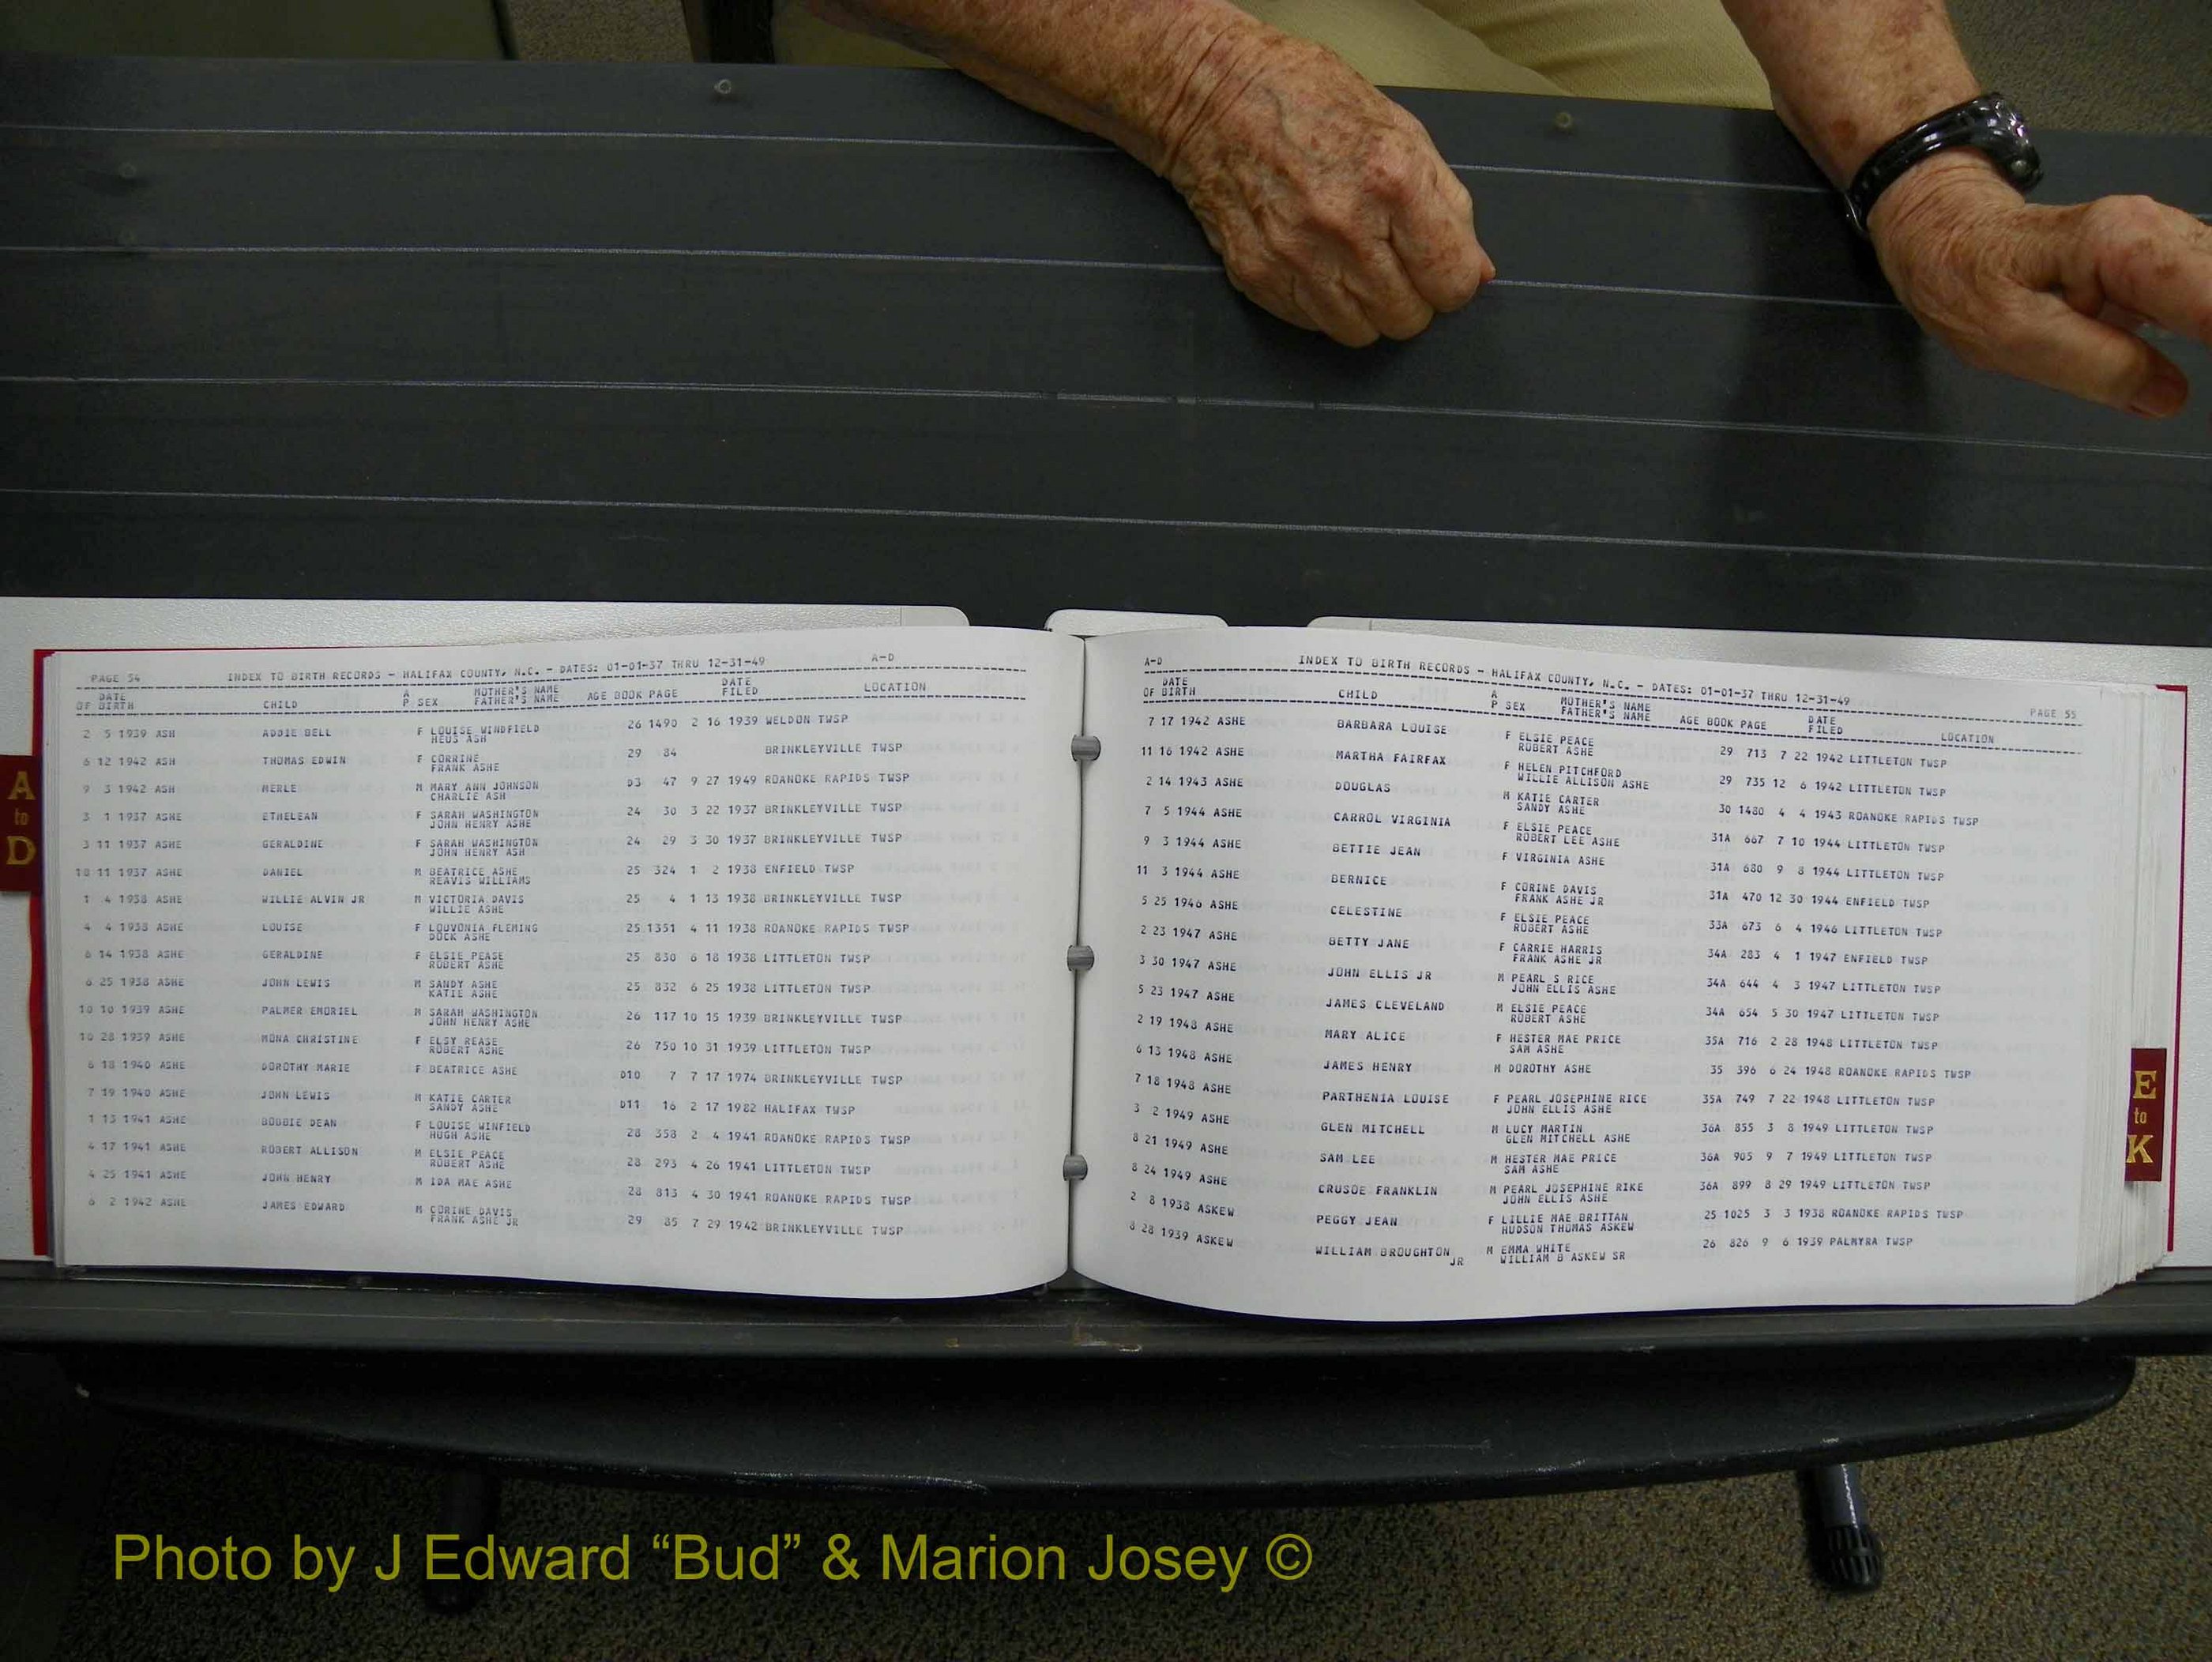 PAGE 54 INDEX TO BIRTH RECORDS - HALIFAX COUNTY, N.C. - DATES: 01-01-37 THRU 12-31-49 A-D
DATE OF BIRTH CHILD A P SEX MOTHER'S NAME FATHER'S NAME AGE BOOK PAGE DATE FILED LOCATION
2 5 1939 ASH ADDIE BELL F LOUISE WINDFIELD 26 1490 2 16 1939 WELDON TWSP
HEUS ASH
6 12 1942 ASH THOMAS EDWIN F CORRINE 29 84 BRINKLEYVILLE TWSP
FRANK ASHE
9 3 1942 ASH MERLE M MARY ANN JOHNSON D3 47 9 27 1949 ROANOKE RAPIDS TWSP
CHARLIE ASH
3 1 1937 ASHE ETHELEAN F SARAH WASHINGTON 24 30 3 22 1937 BRINKLEYVILLE TWSP
JOHN HENRY ASHE
3 11 1937 ASHE GERALDINE F SARAH WASHINGTON 24 29 3 30 1937 BRINKLEYVILLE TWSP
JOHN HENRY ASH
10 11 1937 ASHE DANIEL M BEATRICE ASHE 25 324 1 2 1938 ENFIELD TWSP
REAVIS WILLIAMS
1 4 1938 ASHE WILLIE ALVIN JR M VICTORIA DAVIS 25 4 1 13 1938 BRINKLEYVILLE TWSP
WILLIE ASHE
4 4 1938 ASHE LOUISE F LOUVONIA FLEMING 25 1351 4 11 1938 ROANOKE RAPIDS TWSP
DOCK ASHE
6 14 1938 ASHE GERALDINE F ELSIE PEASE 25 830 6 18 1938 LITTLETON TWSP
ROBERT ASHE
6 25 1938 ASHE JOHN LEWIS M SANDY ASHE 25 832 6 25 1938 LITTLETON TWSP
KATIE ASHE
10 10 1939 ASHE PALMER EMORIEL M SARAH WASHINGTON 26 117 10 15 1939 BRINKLEYVILLE TWSP
JOHN HENRY ASHE
10 28 1939 ASHE MONA CHRISTINE F ELSY REASE 26 750 10 31 1939 LITTLETON TWSP
ROBERT ASHE
6 18 1940 ASHE DOROTHY MARIE F BEATRICE ASHE D10 7 7 17 1974 BRINKLEYVILLE TWSP
7 19 1940 ASHE JOHN LEWIS M KATIE CARTER D11 16 2 17 1982 HALIFAX TWSP
SANDY ASHE
1 13 1941 ASHE BOBBIE DEAN F LOUISE WINFIELD 28 358 2 4 1941 ROANOKE RAPIDS TWSP
HUGH ASHE
4 17 1941 ASHE ROBERT ALLISON M ELSIE PEACE 28 293 4 26 1941 LITTLETON TWSP
ROBERT ASHE
4 25 1941 ASHE JOHN HENRY M IDA MAE ASHE 28 813 4 30 1941 ROANOKE RAPIDS TWSP
6 2 1942 ASHE JAMES EDWARD M CORINE DAVIS 29 85 7 29 1942 BRINKLEYVILLE TWSP
FRANK ASHE JR
A-D INDEX TO BIRTH RECORDS - HALIFAX COUNTY, N.C. - DATES: 01-01-37 THRU 12-31-49 PAGE 55
DATE OF BIRTH CHILD A P SEX MOTHER'S NAME FATHER'S NAME AGE BOOK PAGE DATE FILED LOCATION
7 17 1942 ASHE BARBARA LOUISE F ELSIE PEACE 29 713 7 22 1942 LITTLETON TWSP
ROBERT ASHE
11 16 1942 ASHE MARTHA FAIRFAX F HELEN PITCHFORD 29 735 12 6 1942 LITTLETON TWSP
WILLIE ALLISON ASHE
2 14 1943 ASHE DOUGLAS M KATIE CARTER 30 1480 4 4 1943 ROANOKE RAPIDS TWSP
SANDY ASHE
7 5 1944 ASHE CARROL VIRGINIA F ELSIE PEACE 31A 667 7 10 1944 LITTLETON TWSP
ROBERT LEE ASHE
9 3 1944 ASHE BETTIE JEAN F VIRGINIA ASHE 31A 680 9 8 1944 LITTLETON TWSP
11 3 1944 ASHE BERNICE F CORINE DAVIS 31A 470 12 30 1944 ENFIELD TWSP
FRANK ASHE JR
5 25 1946 ASHE CELESTINE F ELSIE PEACE 33A 673 6 4 1946 LITTLETON TWSP
ROBERT ASHE
2 23 1947 ASHE BETTY JANE F CARRIE HARRIS 34A 283 4 1 1947 ENFIELD TWSP
FRANK ASHE JR
3 30 1947 ASHE JOHN ELLIS JR M PEARL S RICE 34A 644 4 3 1947 LITTLETON TWSP
JOHN ELLIS ASHE
5 23 1947 ASHE JAMES CLEVELAND M ELSIE PEACE 34A 654 5 30 1947 LITTLETON TWSP
ROBERT ASHE
2 19 1948 ASHE MARY ALICE F HESTER MAE PRICE 35A 716 2 28 1948 LITTLETON TWSP
SAM ASHE
6 13 1948 ASHE JAMES HENRY M DOROTHY ASHE 35 396 6 24 1948 ROANOKE RAPIDS TWSP
7 18 1948 ASHE PARTHENIA LOUISE F PEARL JOSEPHINE RICE 35A 749 7 22 1948 LITTLETON TWSP
JOHN ELLIS ASHE
3 2 1949 ASHE GLEN MITCHELL M LUCY MARTIN 36A 855 3 8 1949 LITTLETON TWSP
GLEN MITCHELL ASHE
8 21 1949 ASHE SAM LEE M HESTER MAE PRICE 36A 905 9 7 1949 LITTLETON TWSP
SAM ASHE
8 24 1949 ASHE CRUSOE FRANKLIN M PEARL JOSEPHINE RIKE 36A 899 8 29 1949 LITTLETON TWSP
JOHN ELLIS ASHE
2 8 1938 ASKEW PEGGY JEAN F LILLIE MAE BRITTAN 25 1025 3 3 1938 ROANOKE RAPIDS TWSP
HUDSON THOMAS ASKEW
8 28 1939 ASKEW WILLIAM BROUGHTON JR M EMMA WHITE 26 826 9 6 1939 PALMYRA TWSP
WILLIAM B ASKEW SR
A
to
D
E
to
K
Photo by J Edward “Bud” & Marion Josey ©